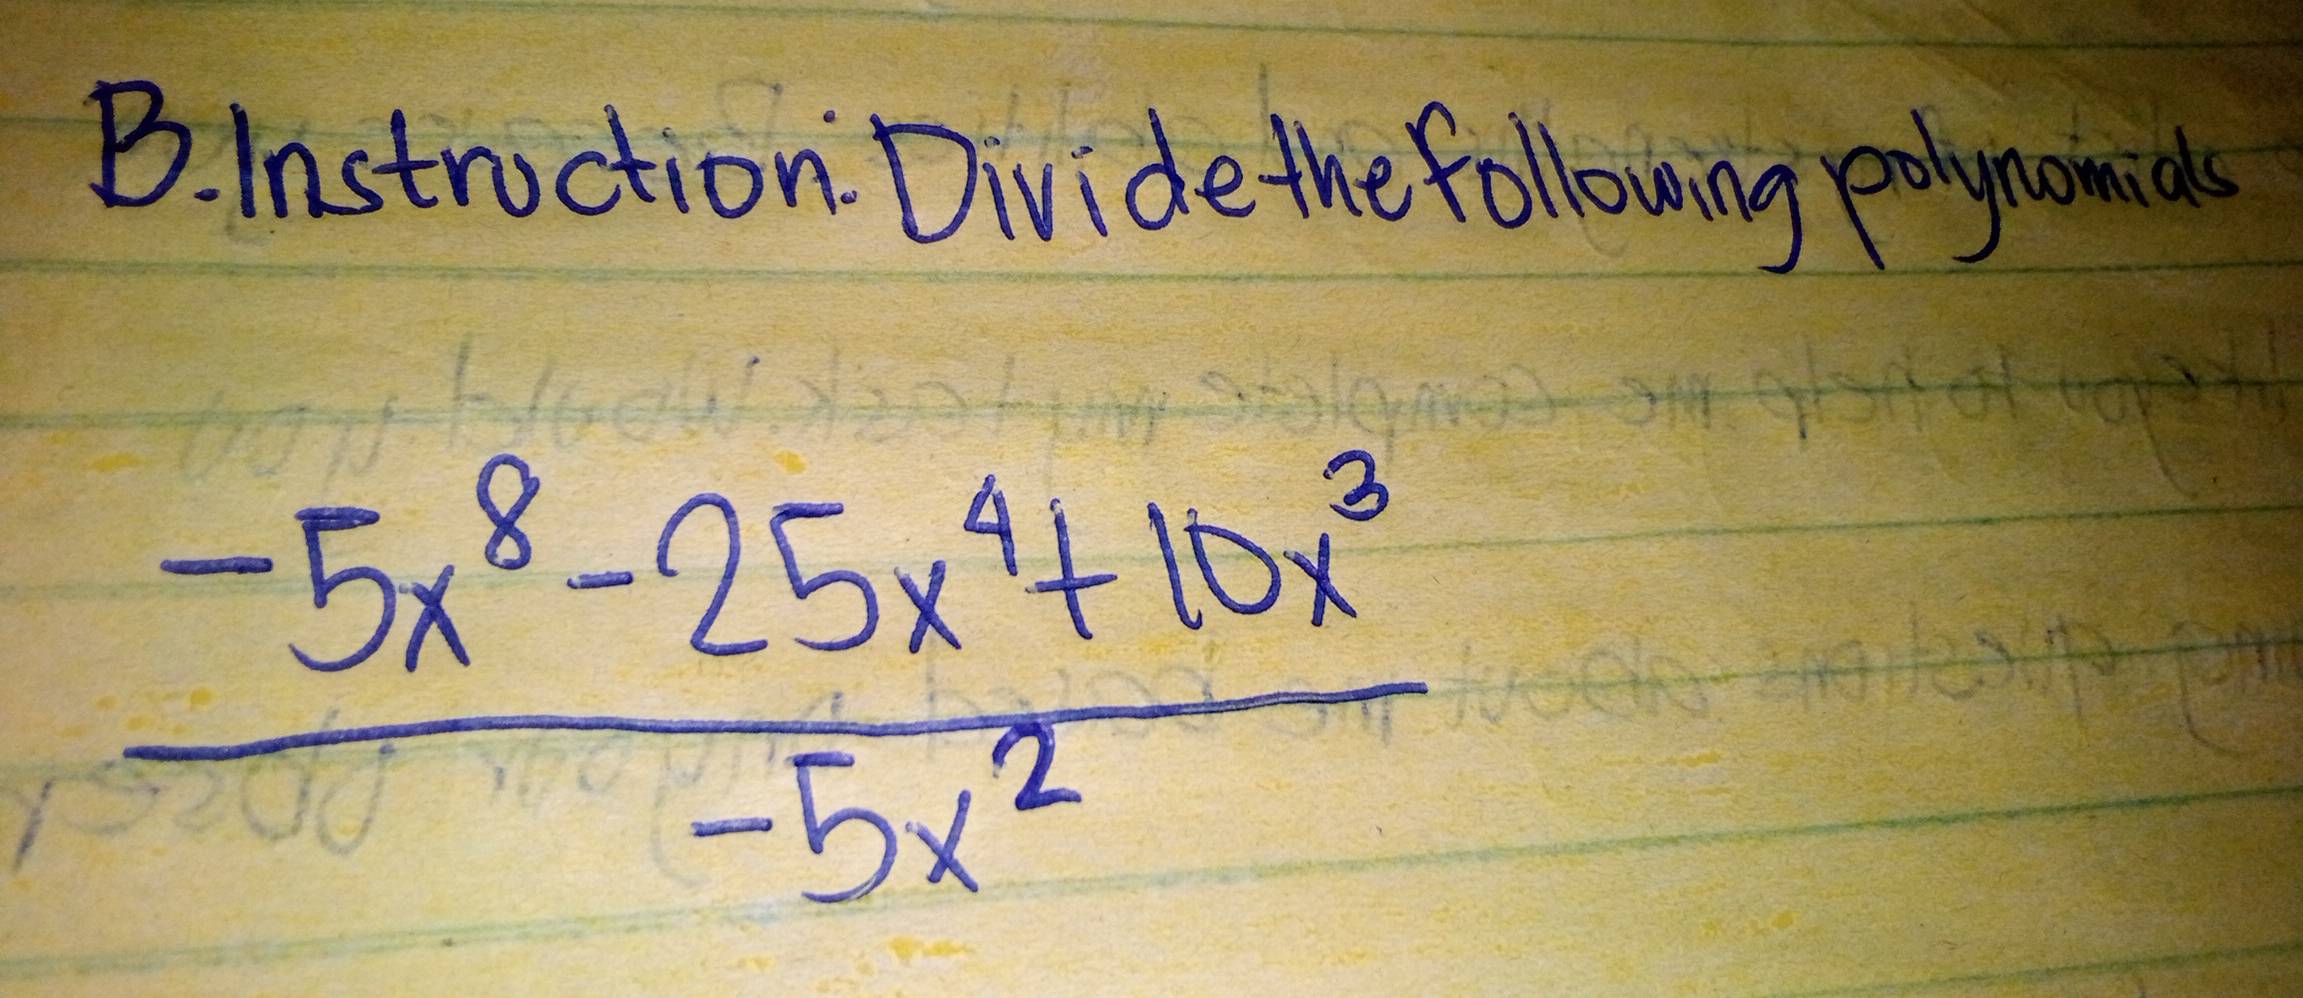 B. Instruction: Divide the following polynomials
-5x⁸ - 25x⁴ + 10x³
-5x²